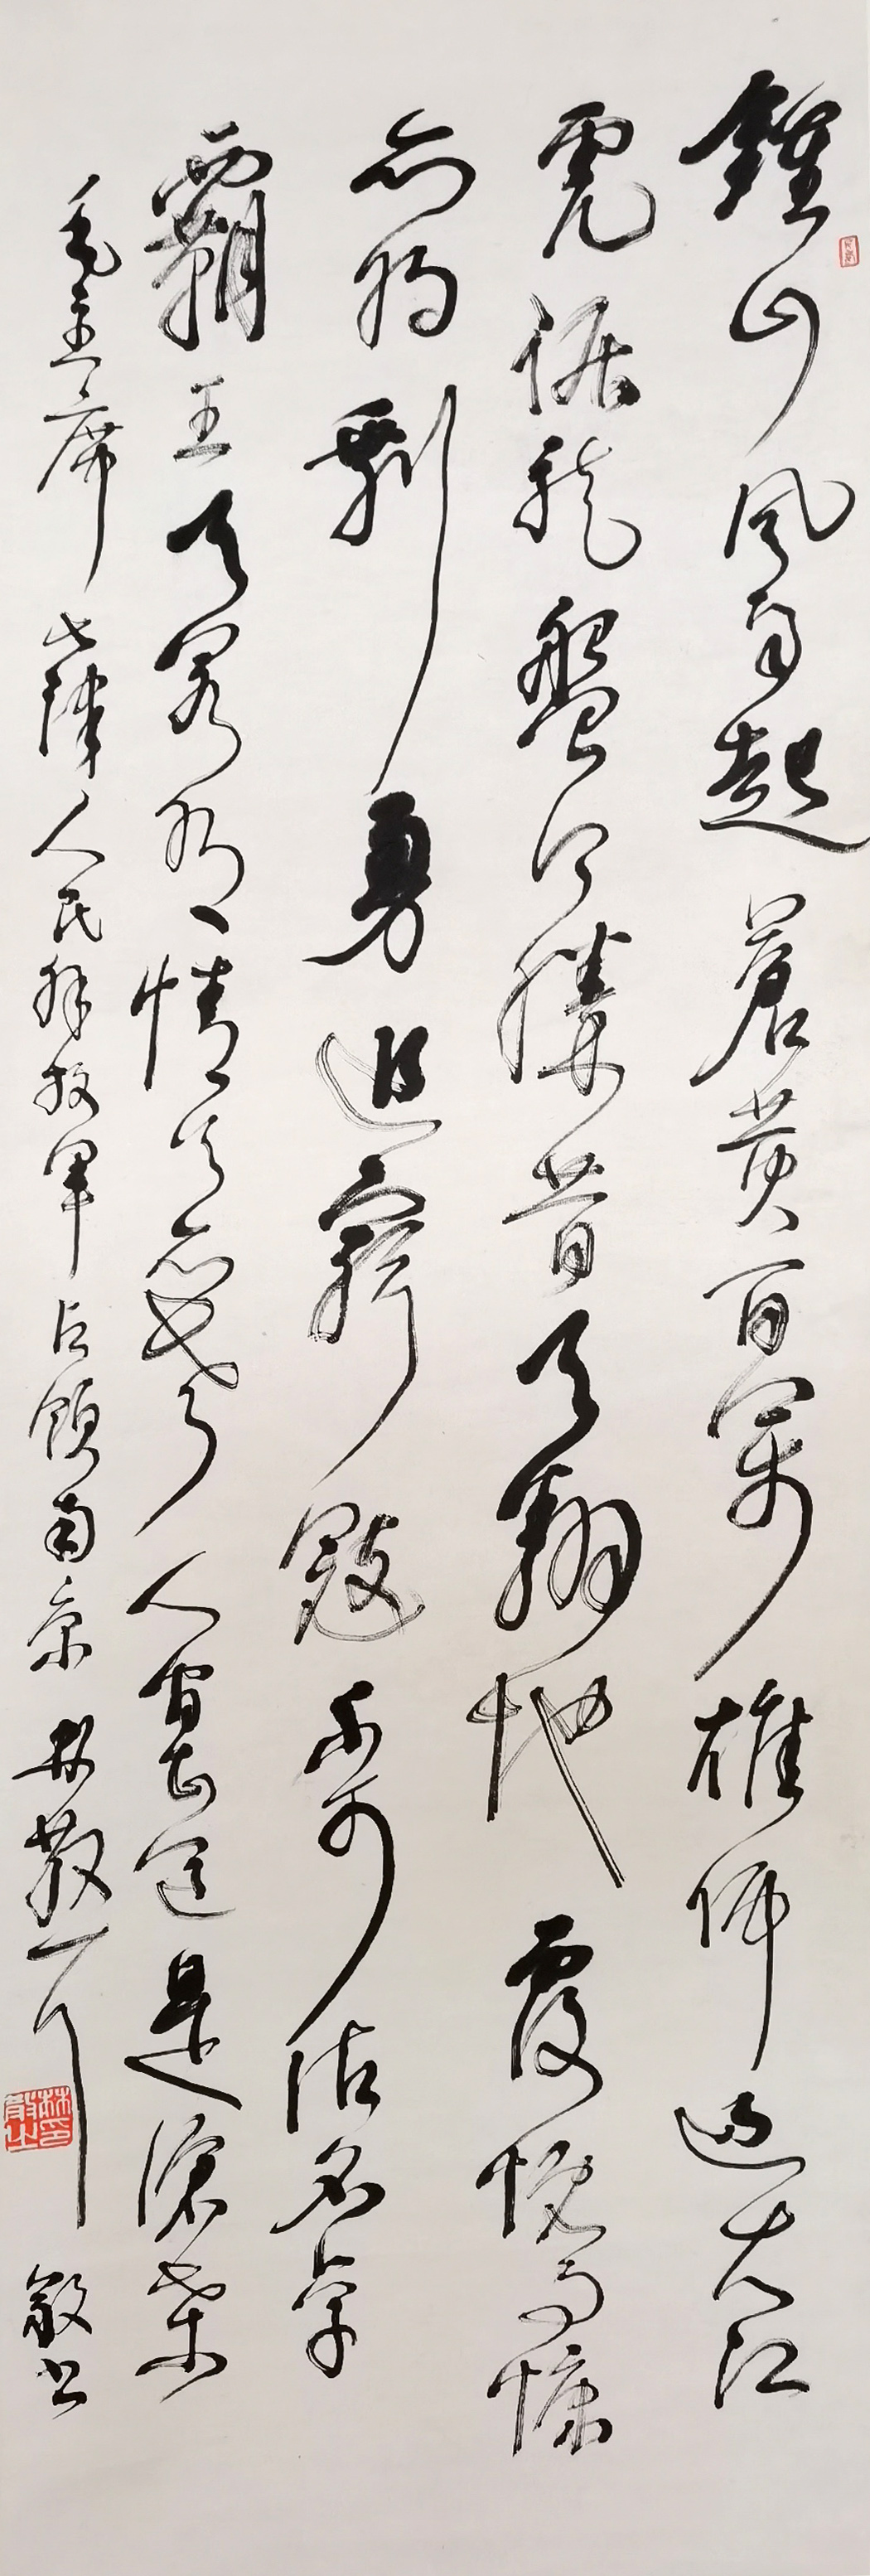 鍾山風雨起蒼黃百萬雄師過大江
虎踞龍盤今勝昔天翻地覆慨而慷
宜將剩勇追窮寇不可沽名學
霸王天若有情天亦老人間正道是滄桑
毛主席七律人民解放軍占領南京 林散之 敬書
林散之印